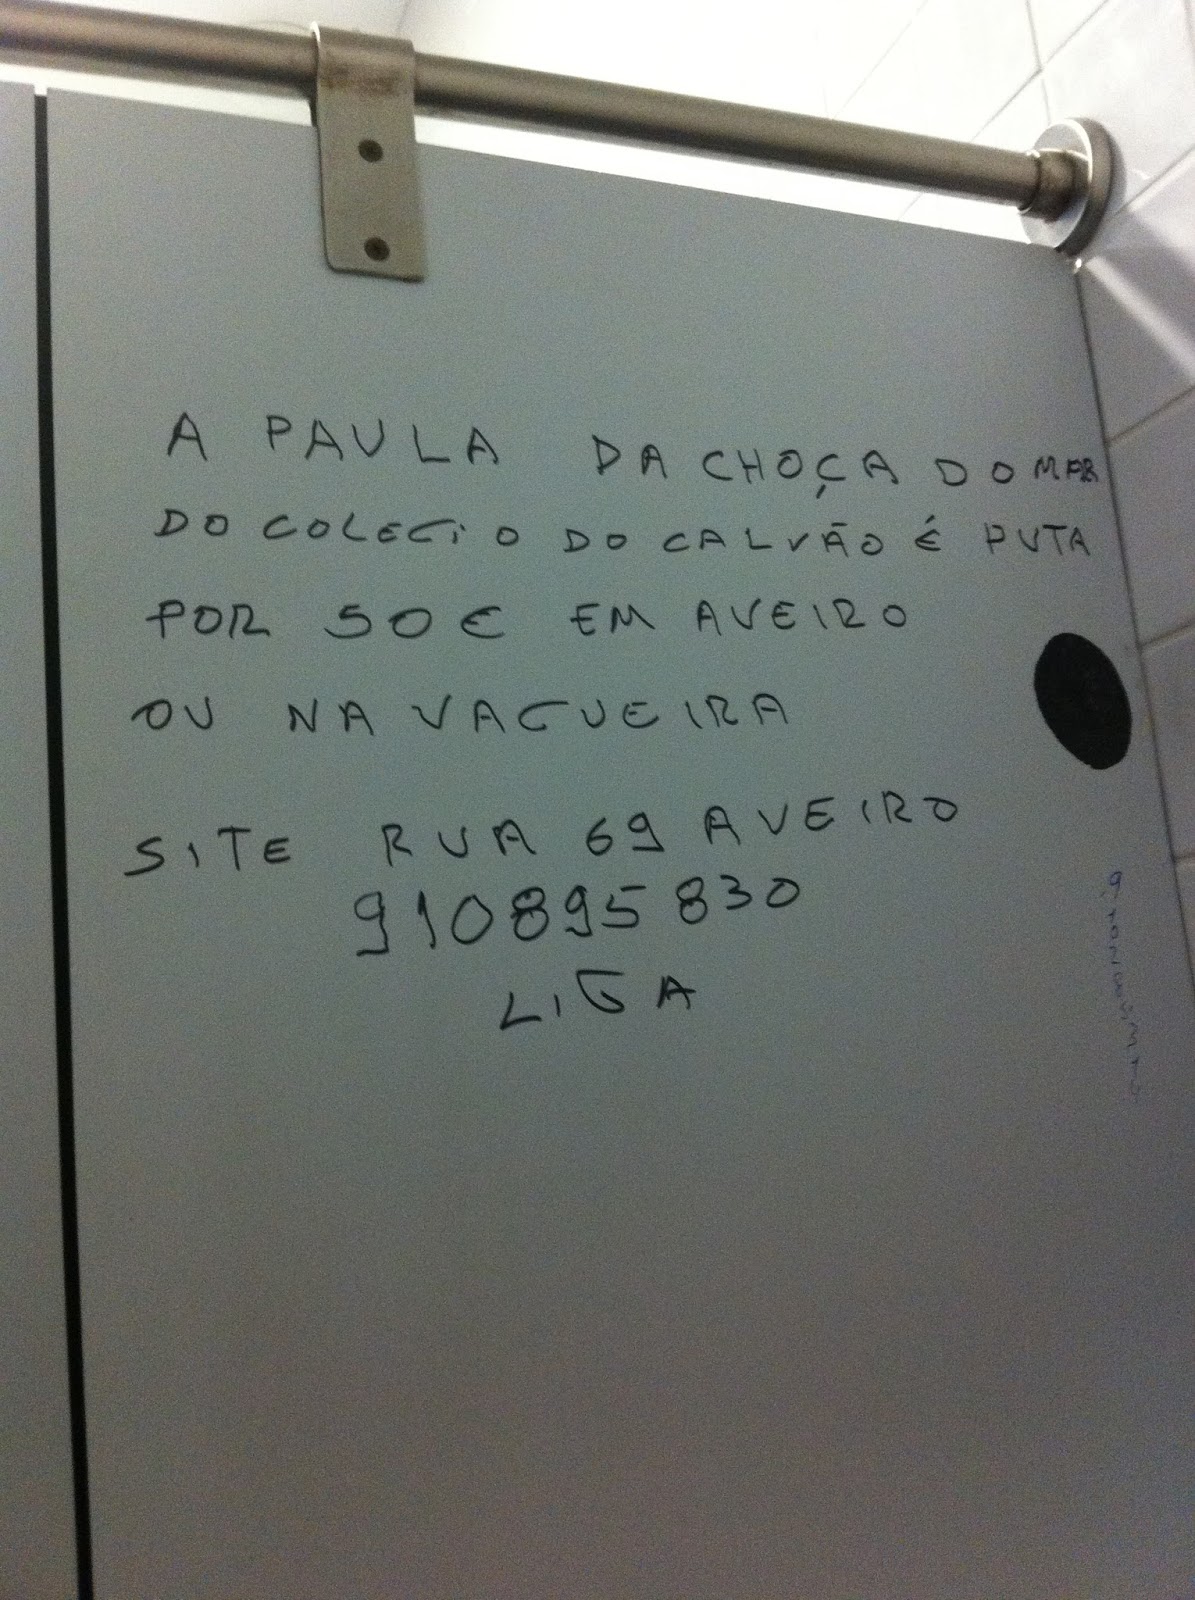 A PAULA DA CHOÇA DO MAR
DO COLEGIO DO CALVÃO É PUTA
POR 50€ EM AVEIRO
OU NA VAGUEIRA
SITE RUA 69 AVEIRO
910895830
LIGA